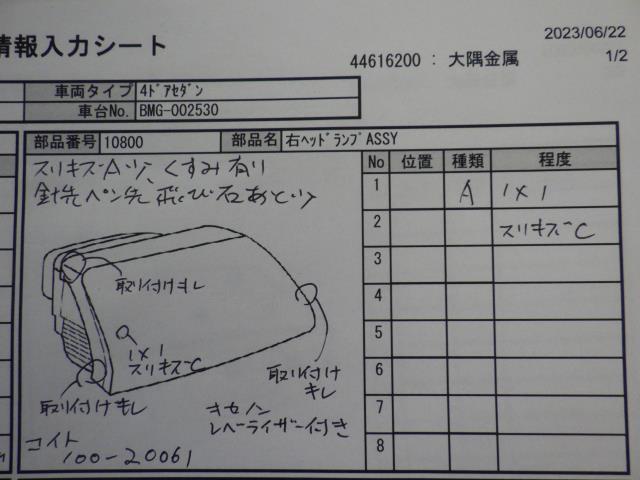 情報入力シート
2023/06/22
44616200 : 大隅金属
1/2
車両タイプ 4ﾄﾞｱｾﾀﾞﾝ
車台No. BMG-002530
部品番号 10800 部品名 右ﾍｯﾄﾞﾗﾝﾌﾟASSY
スリキズA少、くすみ有り
針先ペン先飛び石あと少
No 位置 種類 程度
1 A 1×1
2 スリキズC
3
4
5
6
7
8
取り付けキレ
1×1
スリキズC
取り付け
キレ
取り付けキレ
キセノン
レベーライザー付き
コイト
100-20061